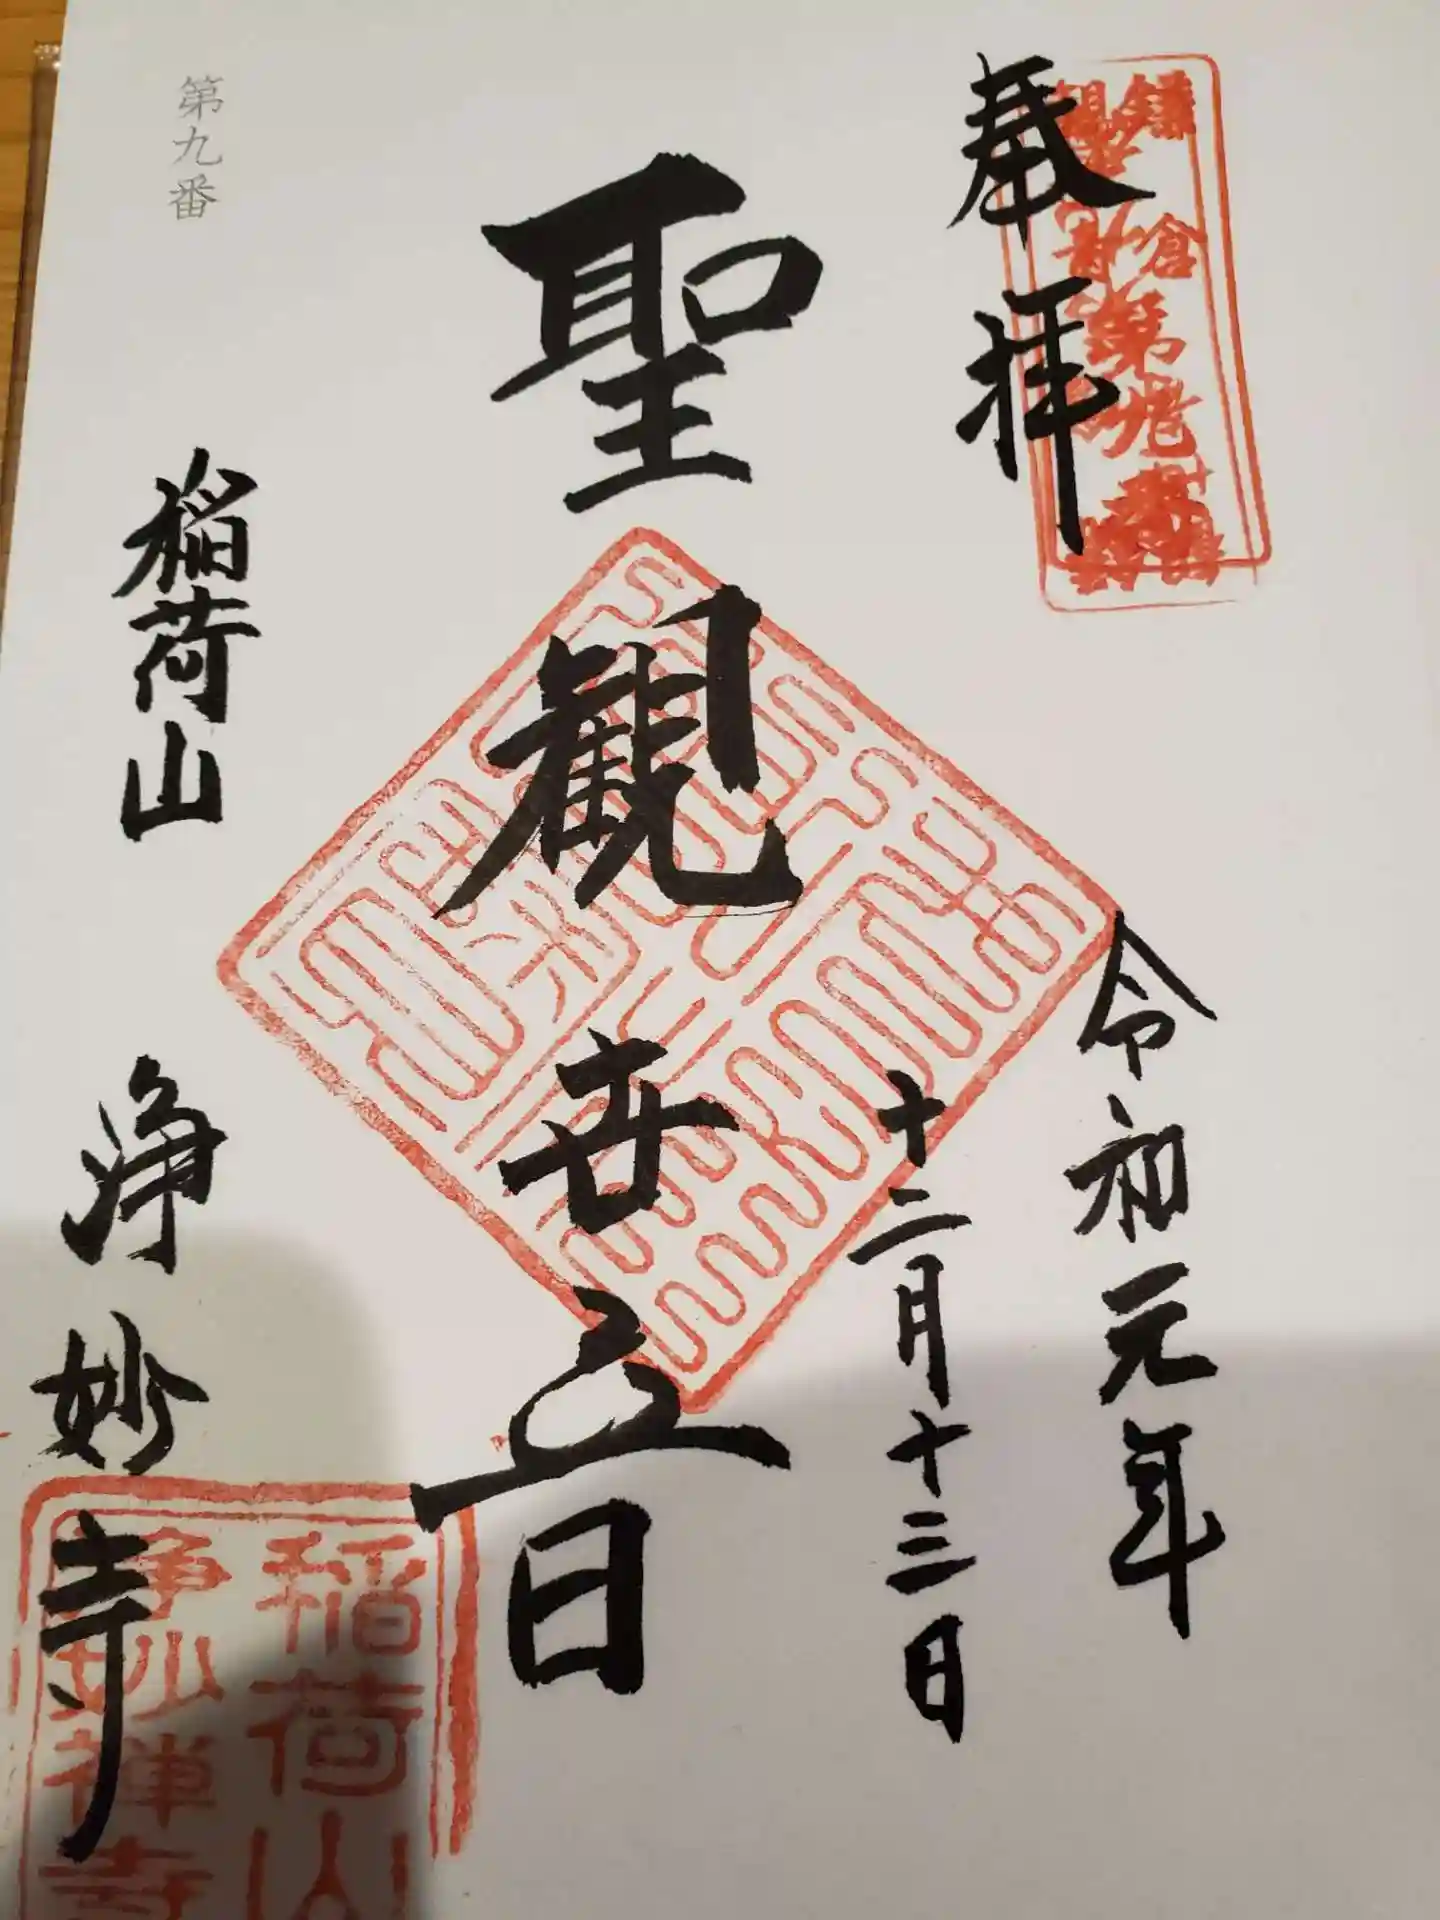 奉拝
鎌倉
第九番
令和元年
十二月十三日
聖観世音
第九番
稲荷山 浄妙寺
稲荷山
浄妙禅寺